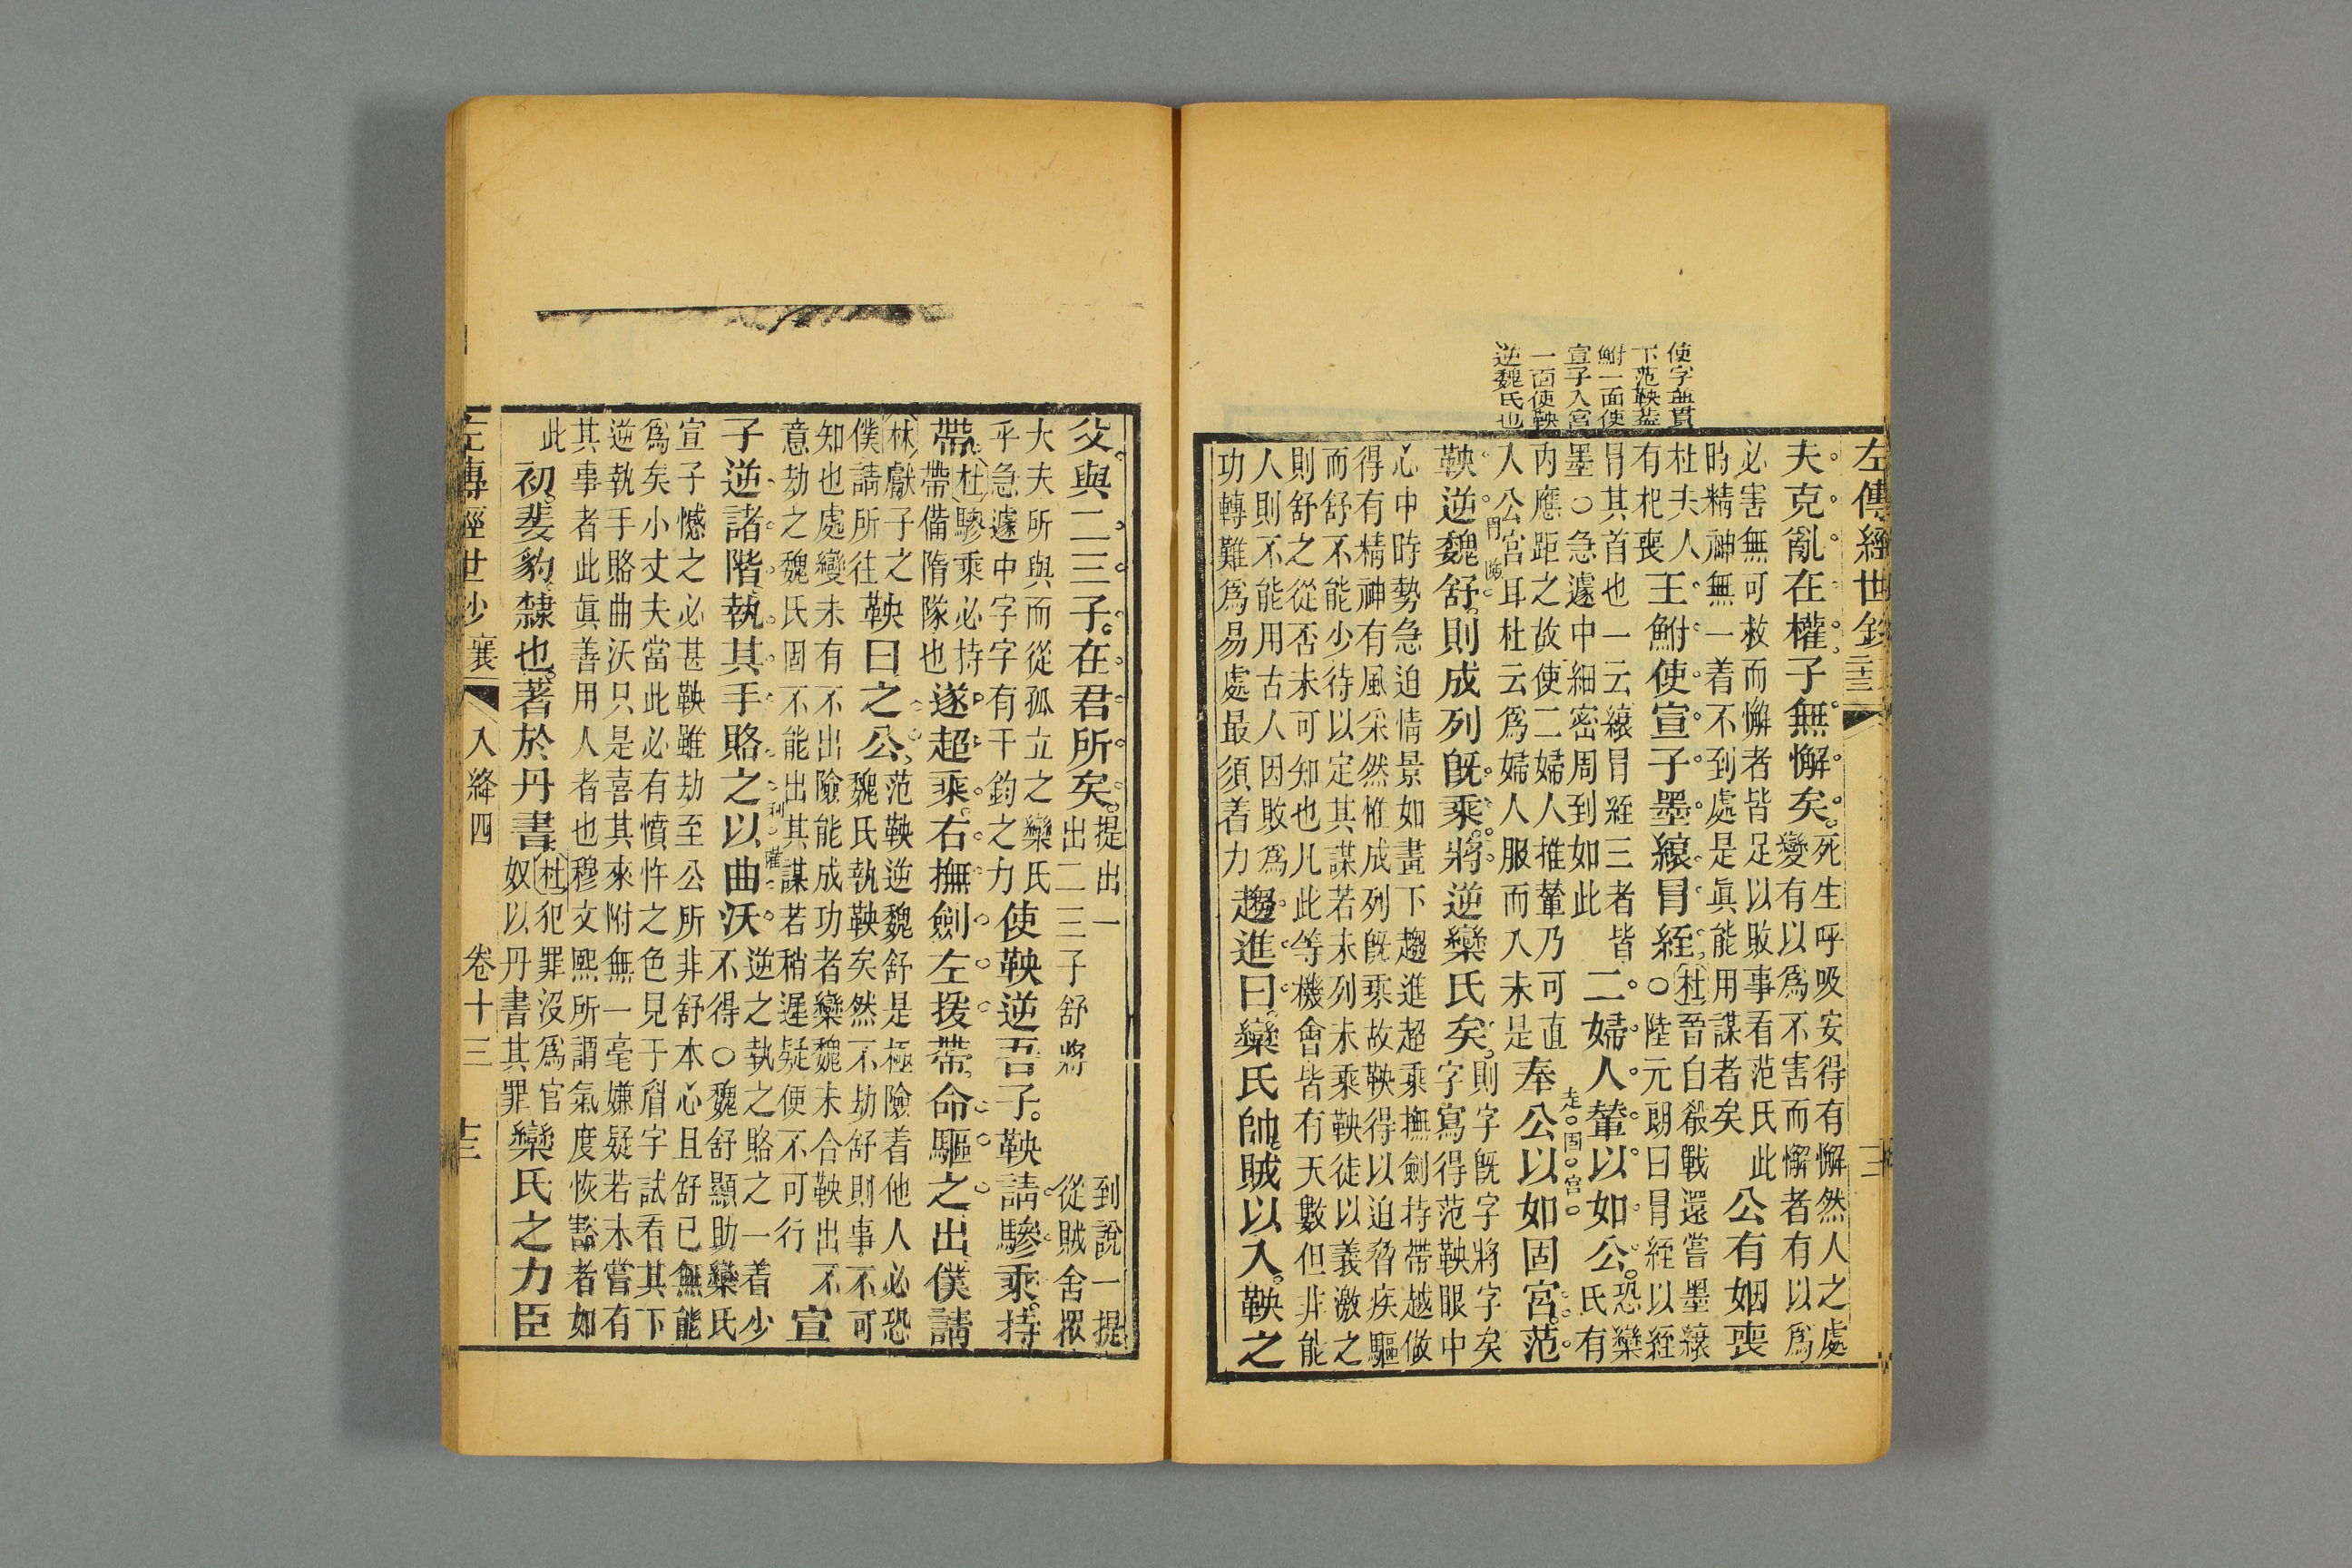 左傳經世鈔
夫克亂在權子無懈矣
死生呼吸安得有懈然人之處
變有以爲不害而懈者有以爲
必害無可救而懈者皆足以敗事看范氏此
時精神無一着不到處是眞能用謀者矣
公有姻喪
杜夫人
有杞喪
王鮒使宣子墨縗冒絰
杜晉自殽戰還嘗墨縗
○陸元朗曰冒絰以絰
冒其首也一云縗冒絰三者皆
墨○急遽中細密周到如此
二婦人輦以如公
恐欒
氏有
內應距之故使二婦人推輦乃可直
入公宮耳杜云爲婦人服而入未是
奉公以如固宮范
走固宮
鞅逆魏舒則成列旣乘將逆欒氏矣
冒險
則字旣字將字矣
字寫得范鞅眼中
心中時勢急迫情景如畫下趨進超乘撫劍持帶越做
得有精神有風采然惟成列旣乘故鞅得以迫脅疾驅
而舒不能少待以定其謀若未列未乘鞅徒以義激之
則舒之從否未可知也凡此等機會皆有天數但非能
人則不能用古人因敗爲
功轉難爲易處最須着力
趨進曰欒氏帥賊以入鞅之
使字並貫
下范鞅蓋
鮒一面使
宣子入宮
一面使鞅
逆魏氏也
父與二三子在君所矣
提出一　到說一提
出二三子舒將從賊舍眾
大夫所與而從孤立之欒氏
乎急遽中字字有千鈞之力
使鞅逆吾子鞅請驂乘持
帶
杜驂乘必持
帶備隋隊也
遂超乘右撫劍左援帶命驅之出僕請
林獻子之
僕請所往
鞅曰之公
范鞅逆魏舒是極險着他人必恐
魏氏執鞅矣然不劫舒則事不可
知也處變未有不出險能成功者欒魏未合鞅出不
意劫之魏氏固不能出其謀若稍遲疑便不可行
宣
子逆諸階執其手賂之以曲沃
利權
逆之執之賂之一着少
不得○魏舒顯助欒氏
宣子憾之必甚鞅雖劫至公所非舒本心且舒已無能
爲矣小丈夫當此必有憤忤之色見于眉宇試看其下
逆執手賂曲沃只是喜其來附無一毫嫌疑若未嘗有
其事者此眞善用人者也穆文熙所謂氣度恢豁者如
此
初斐豹隸也著於丹書
杜犯罪沒爲官
奴以丹書其罪
欒氏之力臣
左傳經世鈔 襄 入絳四 卷十三